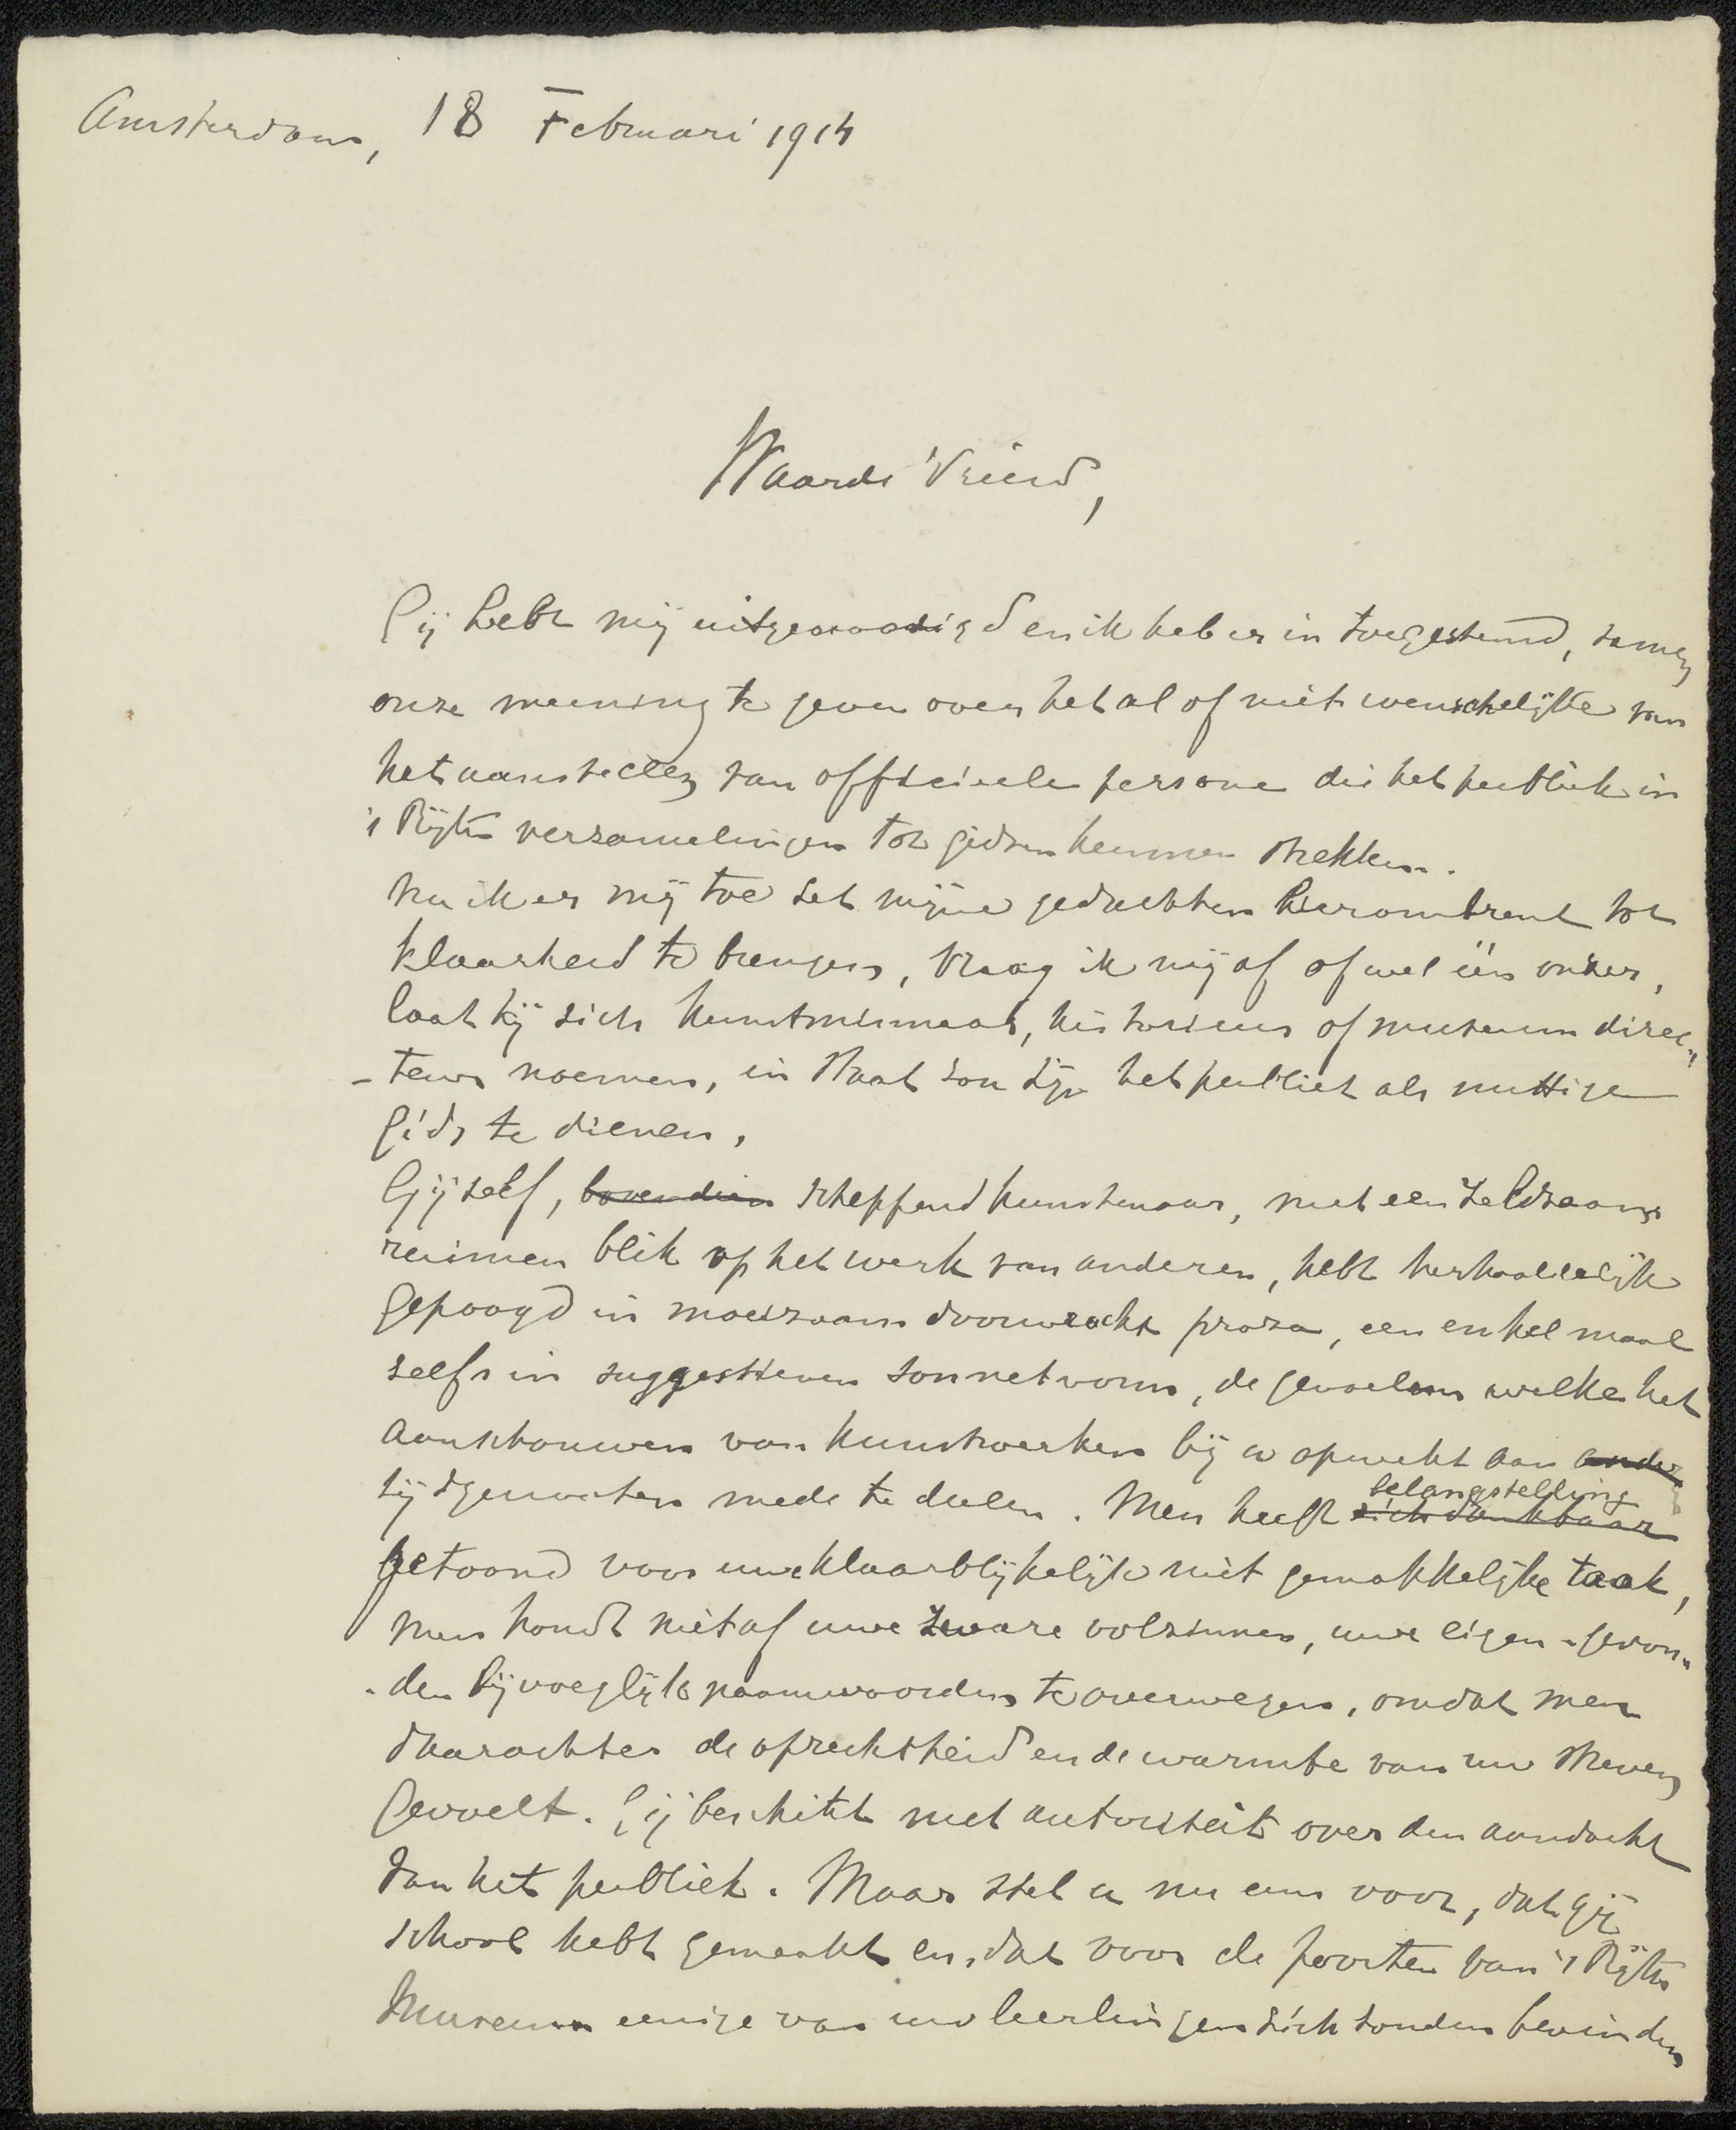 Amsterdam, 18 Februari 1914
Waarde Vriend,
Gij hebt mij uitgenoodigd en ik heb er in toegestemd, samen
onze meening te geven over het al of niet wenschelijke van
het aanstellen van officieele personen die het publiek in
's Rijks verzamelingen tot gidsen kunnen strekken.
Nu ik er mij toe zet mijne gedachten hieromtrent tot
klaarheid te brengen, vraag ik mij af of wel één onzer,
laat hij zich kunstminnaar, historicus of museum direc„
-teur noemen, in staat zou zijn het publiek als nuttige
gids te dienen.
Gij zelf, bovendien scheppend kunstenaar, met een zeldzaam
ruimen blik op het werk van anderen, hebt herhaaldelijk
gepoogd in moeizaam doorwrocht proza, een enkel maal
zelfs in suggestieven sonnetvorm, de gevoelens welke het
aanschouwen van kunstwerken bij u opwekt aan ander
tijdgenooten mede te deelen. Men heeft zich dankbaar belangstelling
getoond voor uwe klaarblijkelijk niet gemakkelijke taak,
men houdt niet af uwe zware volzinnen, uwe eigen-gevon„
-den bijvoeglijke naamwoorden te overwegen, omdat men
daarachter de oprechtheid en de warmte van uw streven
gevoelt. Gij beschikt met autoriteit over den aandacht
van het publiek. Maar stel u nu eens voor, dat gij
school hebt gemaakt en, dat voor de poorten van 's Rijks
Museum eenige van uw leerlingen zich zouden bevinden